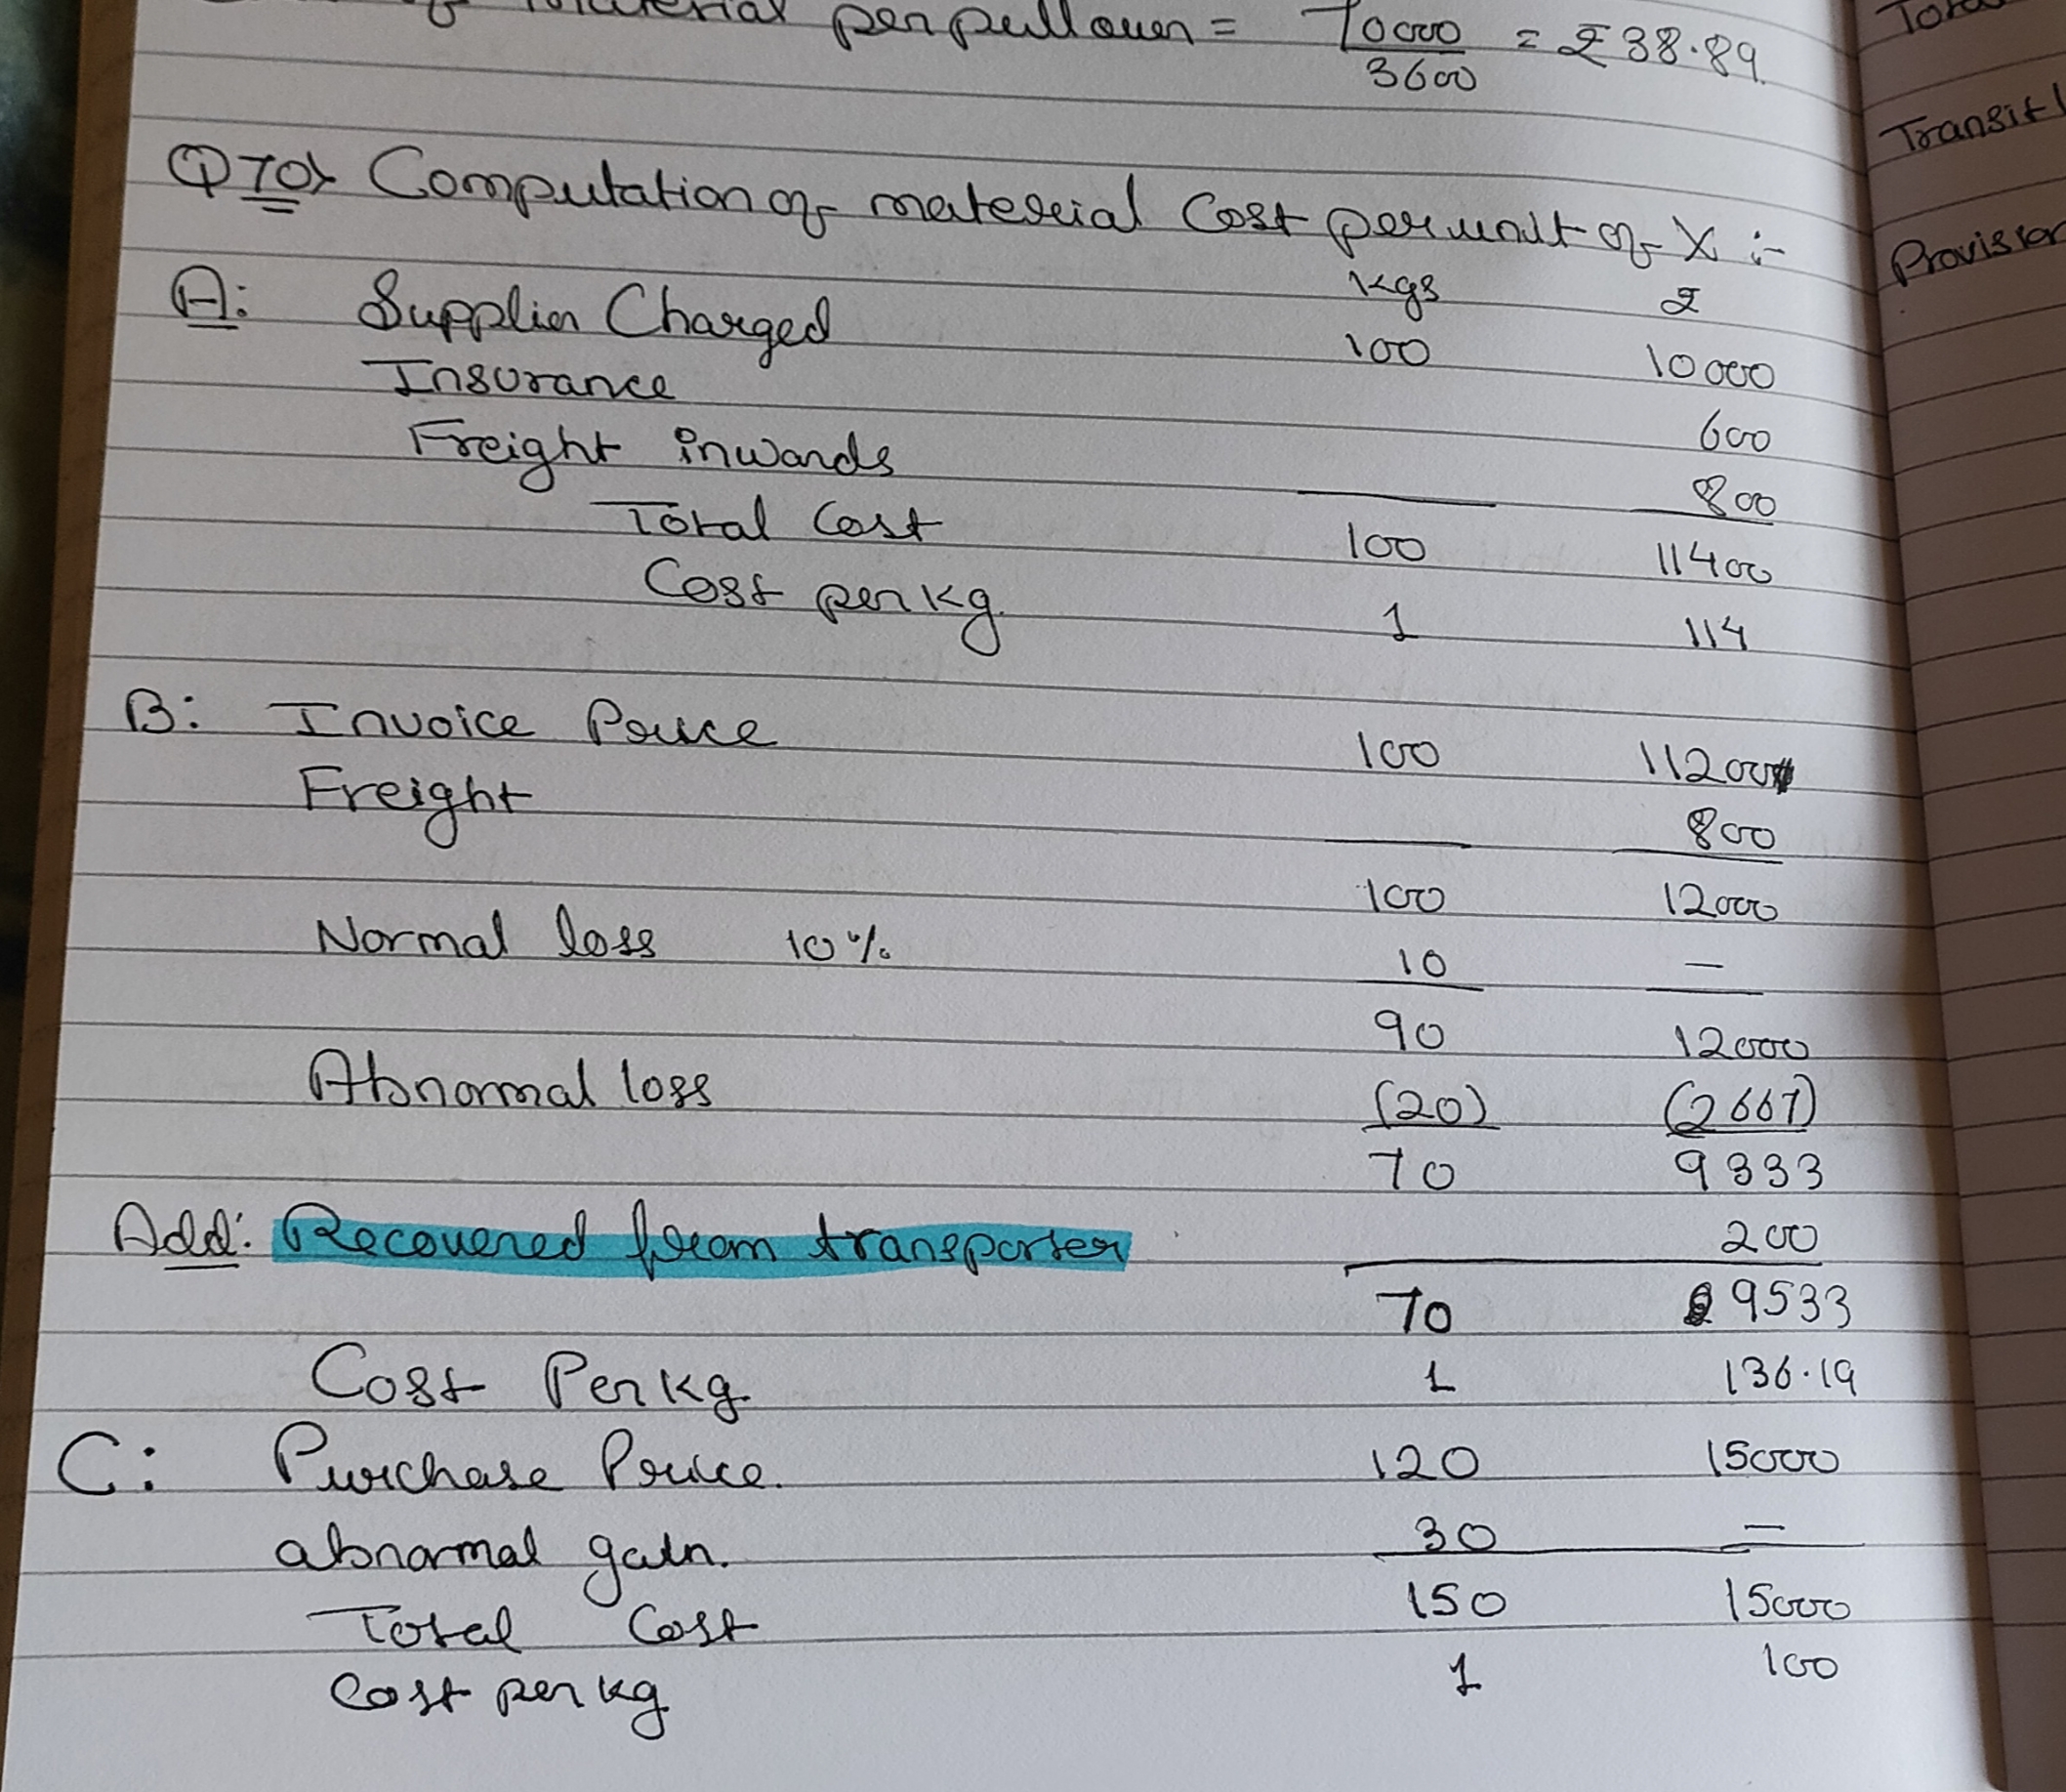 Material per pullover = 70000 / 3600 = ₹38.89
Q70> Computation of material Cost per unit of X :-
Kgs ₹
A: Supplier Charged 100 10000
Insurance 600
Freight inwards 800
Total Cost 100 11400
Cost per kg. 1 114
B: Invoice Price 100 11200
Freight 800
100 12000
Normal loss 10% 10 —
90 12000
Abnormal loss (20) (2667)
70 9333
Add: Recovered from transporter 200
70 9533
Cost Per kg. 1 136.19
C: Purchase Price. 120 15000
abnormal gain. 30 =
Total Cost 150 15000
Cost per kg 1 100
Transit